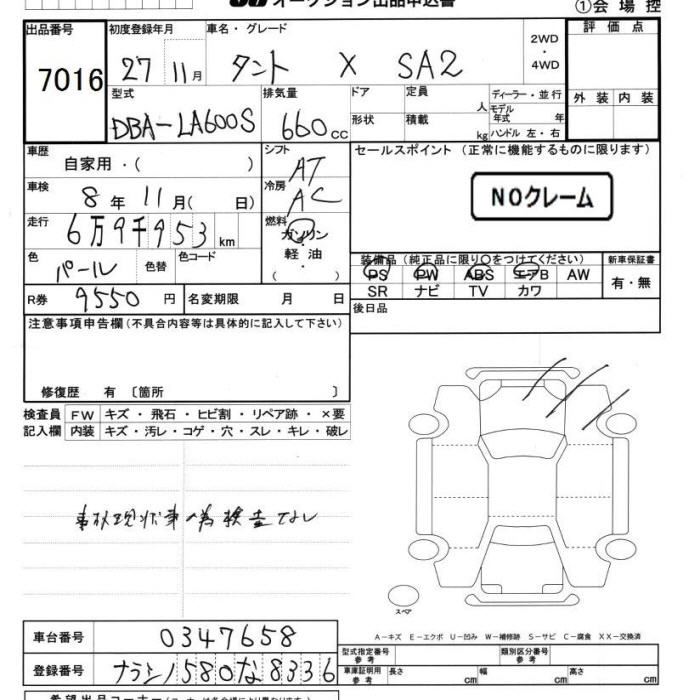 オークション出品申込書
①会場控
出品番号 7016
初度登録年月 27 11月
車名・グレード タント X SA2
2WD ・ 4WD
評価点
外装 内装
型式 DBA-LA600S
排気量 660cc
ドア 形状
定員 人
積載 kg
ディーラー・並行
モデル年式 年
ハンドル 左・右
車歴 自家用・( )
シフト AT
車検 8年 11月( 日)
冷房 AC
走行 6万9千953km
燃料 ガソリン・軽油・( )
色 パール 色替 色コード
R券 9550円 名変期限 月 日
セールスポイント (正常に機能するものに限ります)
NOクレーム
装備品 (純正品に限り○をつけてください)
PS PW ABS エアB AW
SR ナビ TV カワ
新車保証書
有・無
後日品
注意事項申告欄(不具合内容等は具体的に記入して下さい)
修復歴 有 〔箇所 〕
検査員記入欄
FW キズ・飛石・ヒビ割・リペア跡・×要
内装 キズ・汚レ・コゲ・穴・スレ・キレ・破レ
事故現状車の為検査なし
スペア
A-キズ E-エクボ U-凹み W-補修跡 S-サビ C-腐食 XX-交換済
車台番号 0347658
登録番号 ナラ 580 な 8336
型式指定番号 参考
類別区分番号 参考
車庫証明用 参考 長さ cm 幅 cm 高さ cm
希望出品コーナー